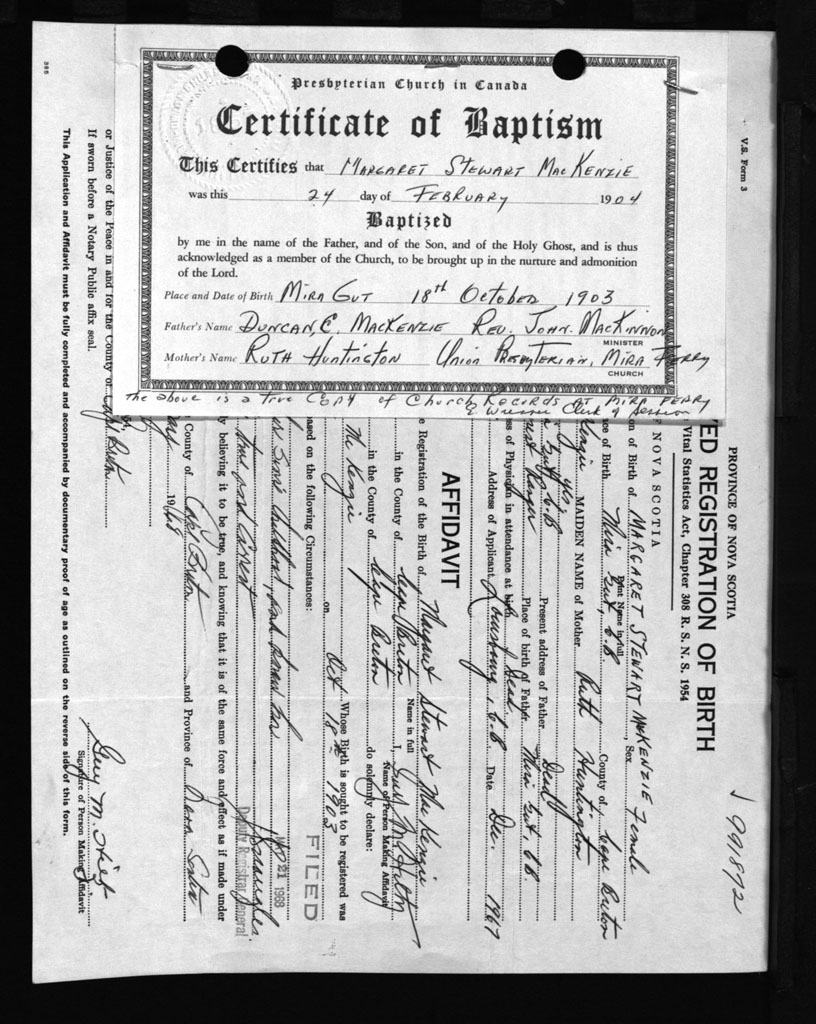 Presbyterian Church in Canada
Certificate of Baptism
This Certifies that MARGARET STEWART MACKENZIE
was this 24 day of FEBRUARY 1904
Baptized
by me in the name of the Father, and of the Son, and of the Holy Ghost, and is thus
acknowledged as a member of the Church, to be brought up in the nurture and admonition
of the Lord.
Place and Date of Birth MIRA GUT 18th OCTOBER 1903
Father's Name DUNCAN E. MACKENZIE REV. JOHN. MACKINNON
MINISTER
Mother's Name RUTH HUNTINGTON UNION PRESBYTERIAN, MIRA FERRY
CHURCH
The above is a true COPY of Church RECORDS AT MIRA FERRY
Clerk of Session
V.S. Form 3
199872
PROVINCE OF NOVA SCOTIA
ED REGISTRATION OF BIRTH
Vital Statistics Act, Chapter 308 R. S. N. S. 1954
NOVA SCOTIA
on of Birth of MARGARET STEWART MACKENZIE Sex Female
Print Name in full
ce of Birth Mira Gut, C.B. County of Cape Breton
MAIDEN NAME of Mother Ruth Huntington
Present address of Father Dead
Place of birth of Father Mira Gut, C.B.
ss of Physician in attendance at birth Dead
Address of Applicant Louisburg, C.B. Date Dec. 1967
AFFIDAVIT
e Registration of the Birth of Margaret Stewart MacKenzie
Name in full
in the County of Cape Breton I,
Name of Person Making Affidavit
in the County of Cape Breton do solemnly declare:
Whose Birth is sought to be registered was
on Oct 18th 1903
ased on the following Circumstances:
FILED
21 1968
Deputy Registrar General
true and correct
y believing it to be true, and knowing that it is of the same force and effect as if made under
County of Cape Breton and Province of Nova Scotia
1968
Guy M.
Signature of Person Making Affidavit
or Justice of the Peace in and for the County of Cape Breton
If sworn before a Notary Public affix seal.
This Application and Affidavit must be fully completed and accompanied by documentary proof of age as outlined on the reverse side of this form.